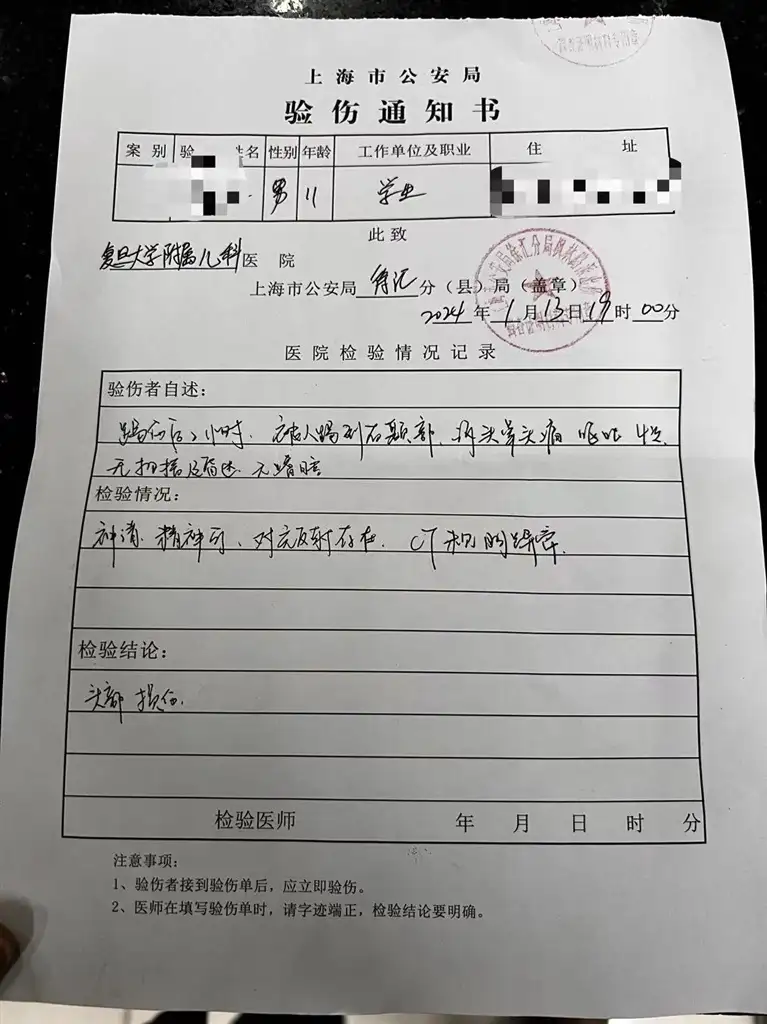 上海市公安局
验伤通知书
案别 验 姓名 性别 年龄 工作单位及职业 住址
男 11 学生
此致
复旦大学附属儿科医院
上海市公安局徐汇分(县)局(盖章)
2024年1月13日19时00分
医院检验情况记录
验伤者自述:
踢伤后2小时. 被人踢到右颞部, 头晕头痛 呕吐
无抽搐及 无
检验情况:
神清, 精神可, 对光反射存在. CT未见明显异常.
检验结论:
头部损伤.
检验医师 年 月 日 时 分
注意事项:
1、验伤者接到验伤单后,应立即验伤。
2、医师在填写验伤单时,请字迹端正,检验结论要明确。